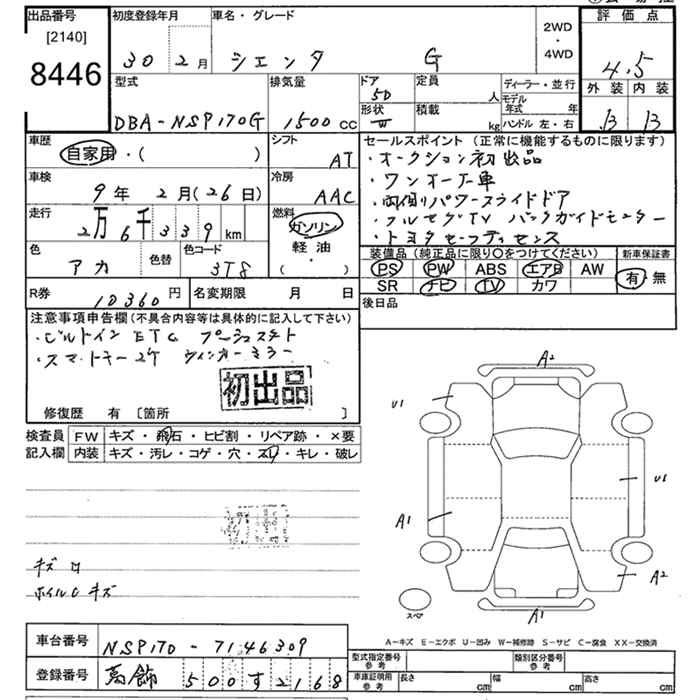 出品番号
[2140]
8446
初度登録年月
30 2月
車名・グレード
シエンタ G
2WD
・
4WD
評価点
4.5
外装 内装
B B
型式
DBA-NSP170G
排気量
1500 cc
ドア
5D
形状
定員
人
積載
kg
ディーラー・並行
モデル
年式 年
ハンドル 左・右
車歴
自家用・( )
シフト
AT
車検
9年 2月(26日)
冷房
AAC
走行
2万6千339 km
燃料
ガソリン
軽油
・
( )
色
アカ
色替
色コード
3T8
R券
10360円
名変期限 月 日
セールスポイント(正常に機能するものに限ります)
・オークション初出品
・ワンオーナー車
・両側パワースライドドア
・フルセグTV バックガイドモニター
・トヨタセーフティセンス
装備品(純正品に限り○をつけてください)
PS PW ABS エアB AW
SR ナビ TV カワ
新車保証書
有・無
後日品
注意事項申告欄(不具合内容等は具体的に記入して下さい)
・ビルトインETC プッシュスタート
・スマートキー2ケ ウィンカーミラー
初出品
修復歴 有 [箇所 ]
検査員
記入欄
FW キズ・飛石・ヒビ割・リペア跡・×要
内装 キズ・汚レ・コゲ・穴・スレ・キレ・破レ
初出品
キズ
ホイルCキズ
A2
U1
U1
A1
A2
A1
スペア
A-キズ E-エクボ U-凹み W-補修跡 S-サビ C-腐食 XX-交換済
車台番号
NSP170-7146309
登録番号
葛飾 500す2168
型式指定番号
参考
類別区分番号
参考
車庫証明用
参考
長さ cm 幅 cm 高さ cm